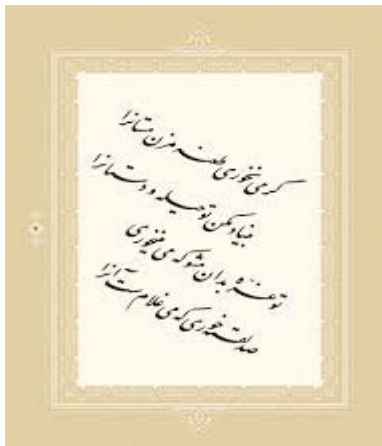 گر می نخوری طعنه مزن مستانرا
بنیاد مکن تو حیله و دستانرا
تو غره بدان مشو که می مینخوری
صد لقمه خوری که می غلام ست آنرا